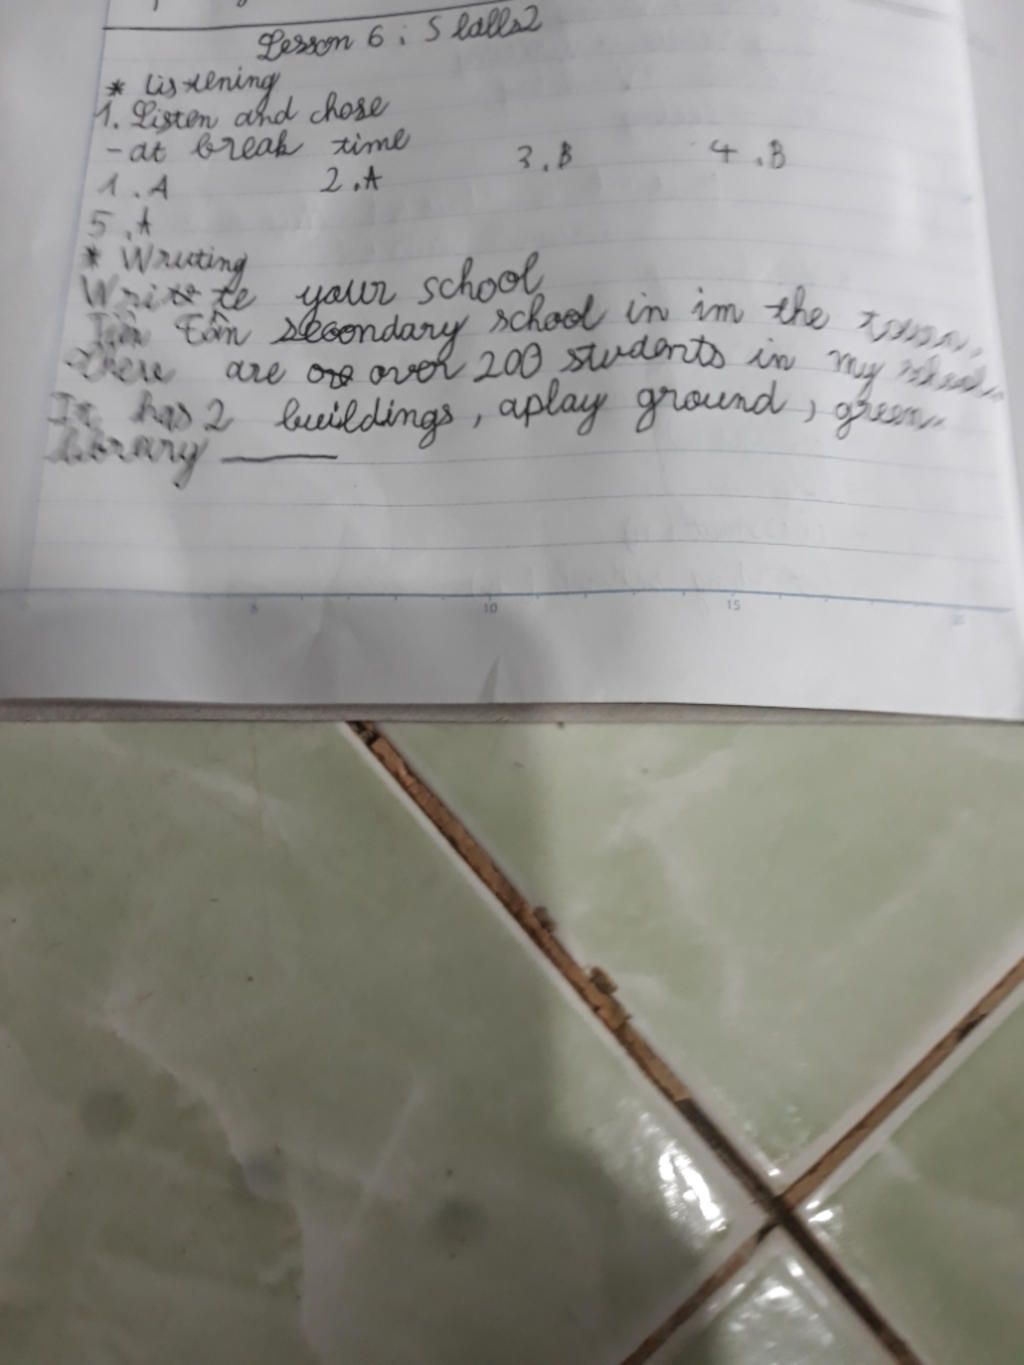 Lesson 6 : Slalls2
* Listening
1. Listen and chose
- at break time
1. A 2. A 3. B 4. B
5. A
* Writing
Write your school
Tân secondary school in im the town,
there are over 200 students in my school.
It has 2 buildings, aplay ground, green
library